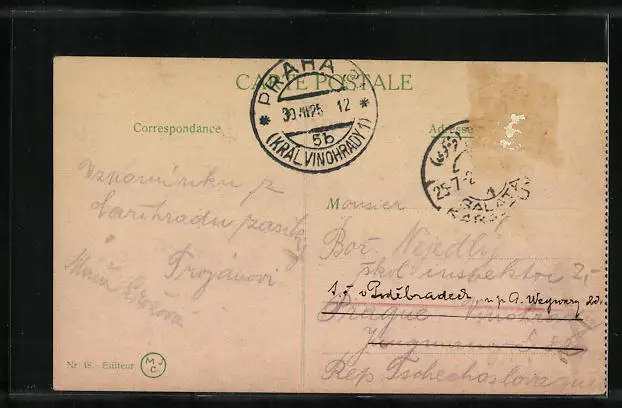 CARTE POSTALE
PRAHA
30 VII 25 12
5b
(KRÁL. VINOHRADY 1)
Correspondance
Adresse
25-7-2
GALATA
Vzpomínku z
Cařihradu zasílá
Trojánovi
Monsieur
Boř. Nejedlý
škol. inspektor
t. č. v Poděbradech, u p. A.
Prague Vinohrady
Rep. Tschechoslovaque
Nr 18. Editeur
MJC